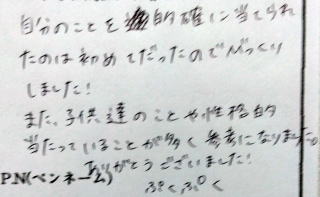 自分のことを的確に当てられ
たのは初めてだったのでびっくり
しました!
また、子供達のことや性格的
当たっていることが多く参考になりました。
ありがとうございました!
P.N(ペンネーム)
ぷくぷく